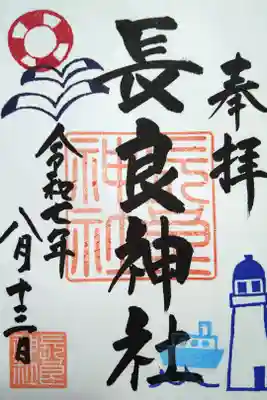 奉拝
長良神社
令和七年
八月十三日
長良神社
長良神社